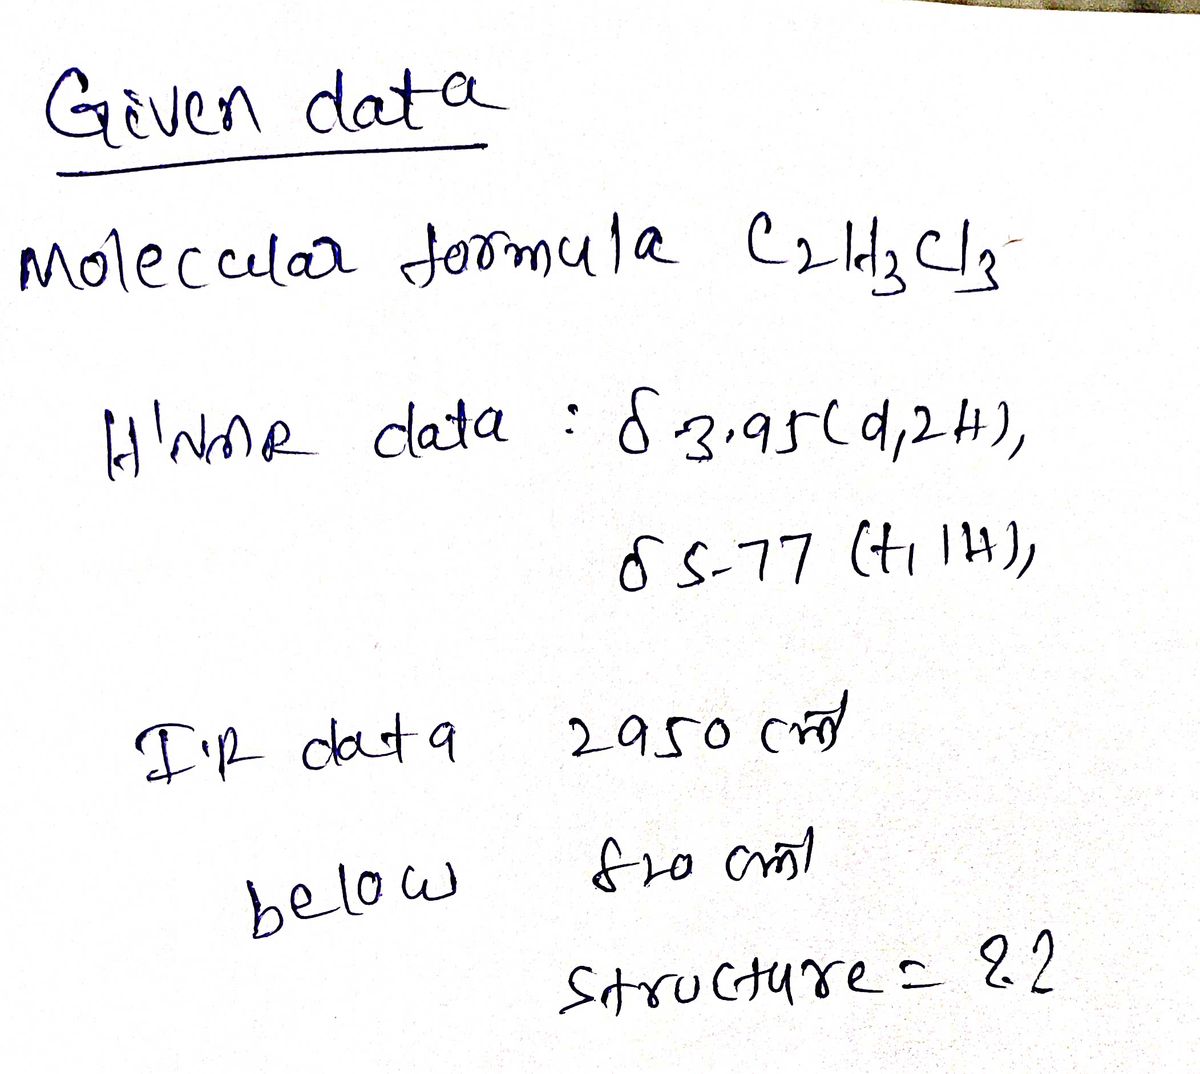 Given data
Molecular formula C2H3Cl3
H'NMR data : δ 3.95 (d, 2H),
δ 5.77 (t, 1H),
I.R data 2950 cm-1
below 820 cm-1
Structure = ??